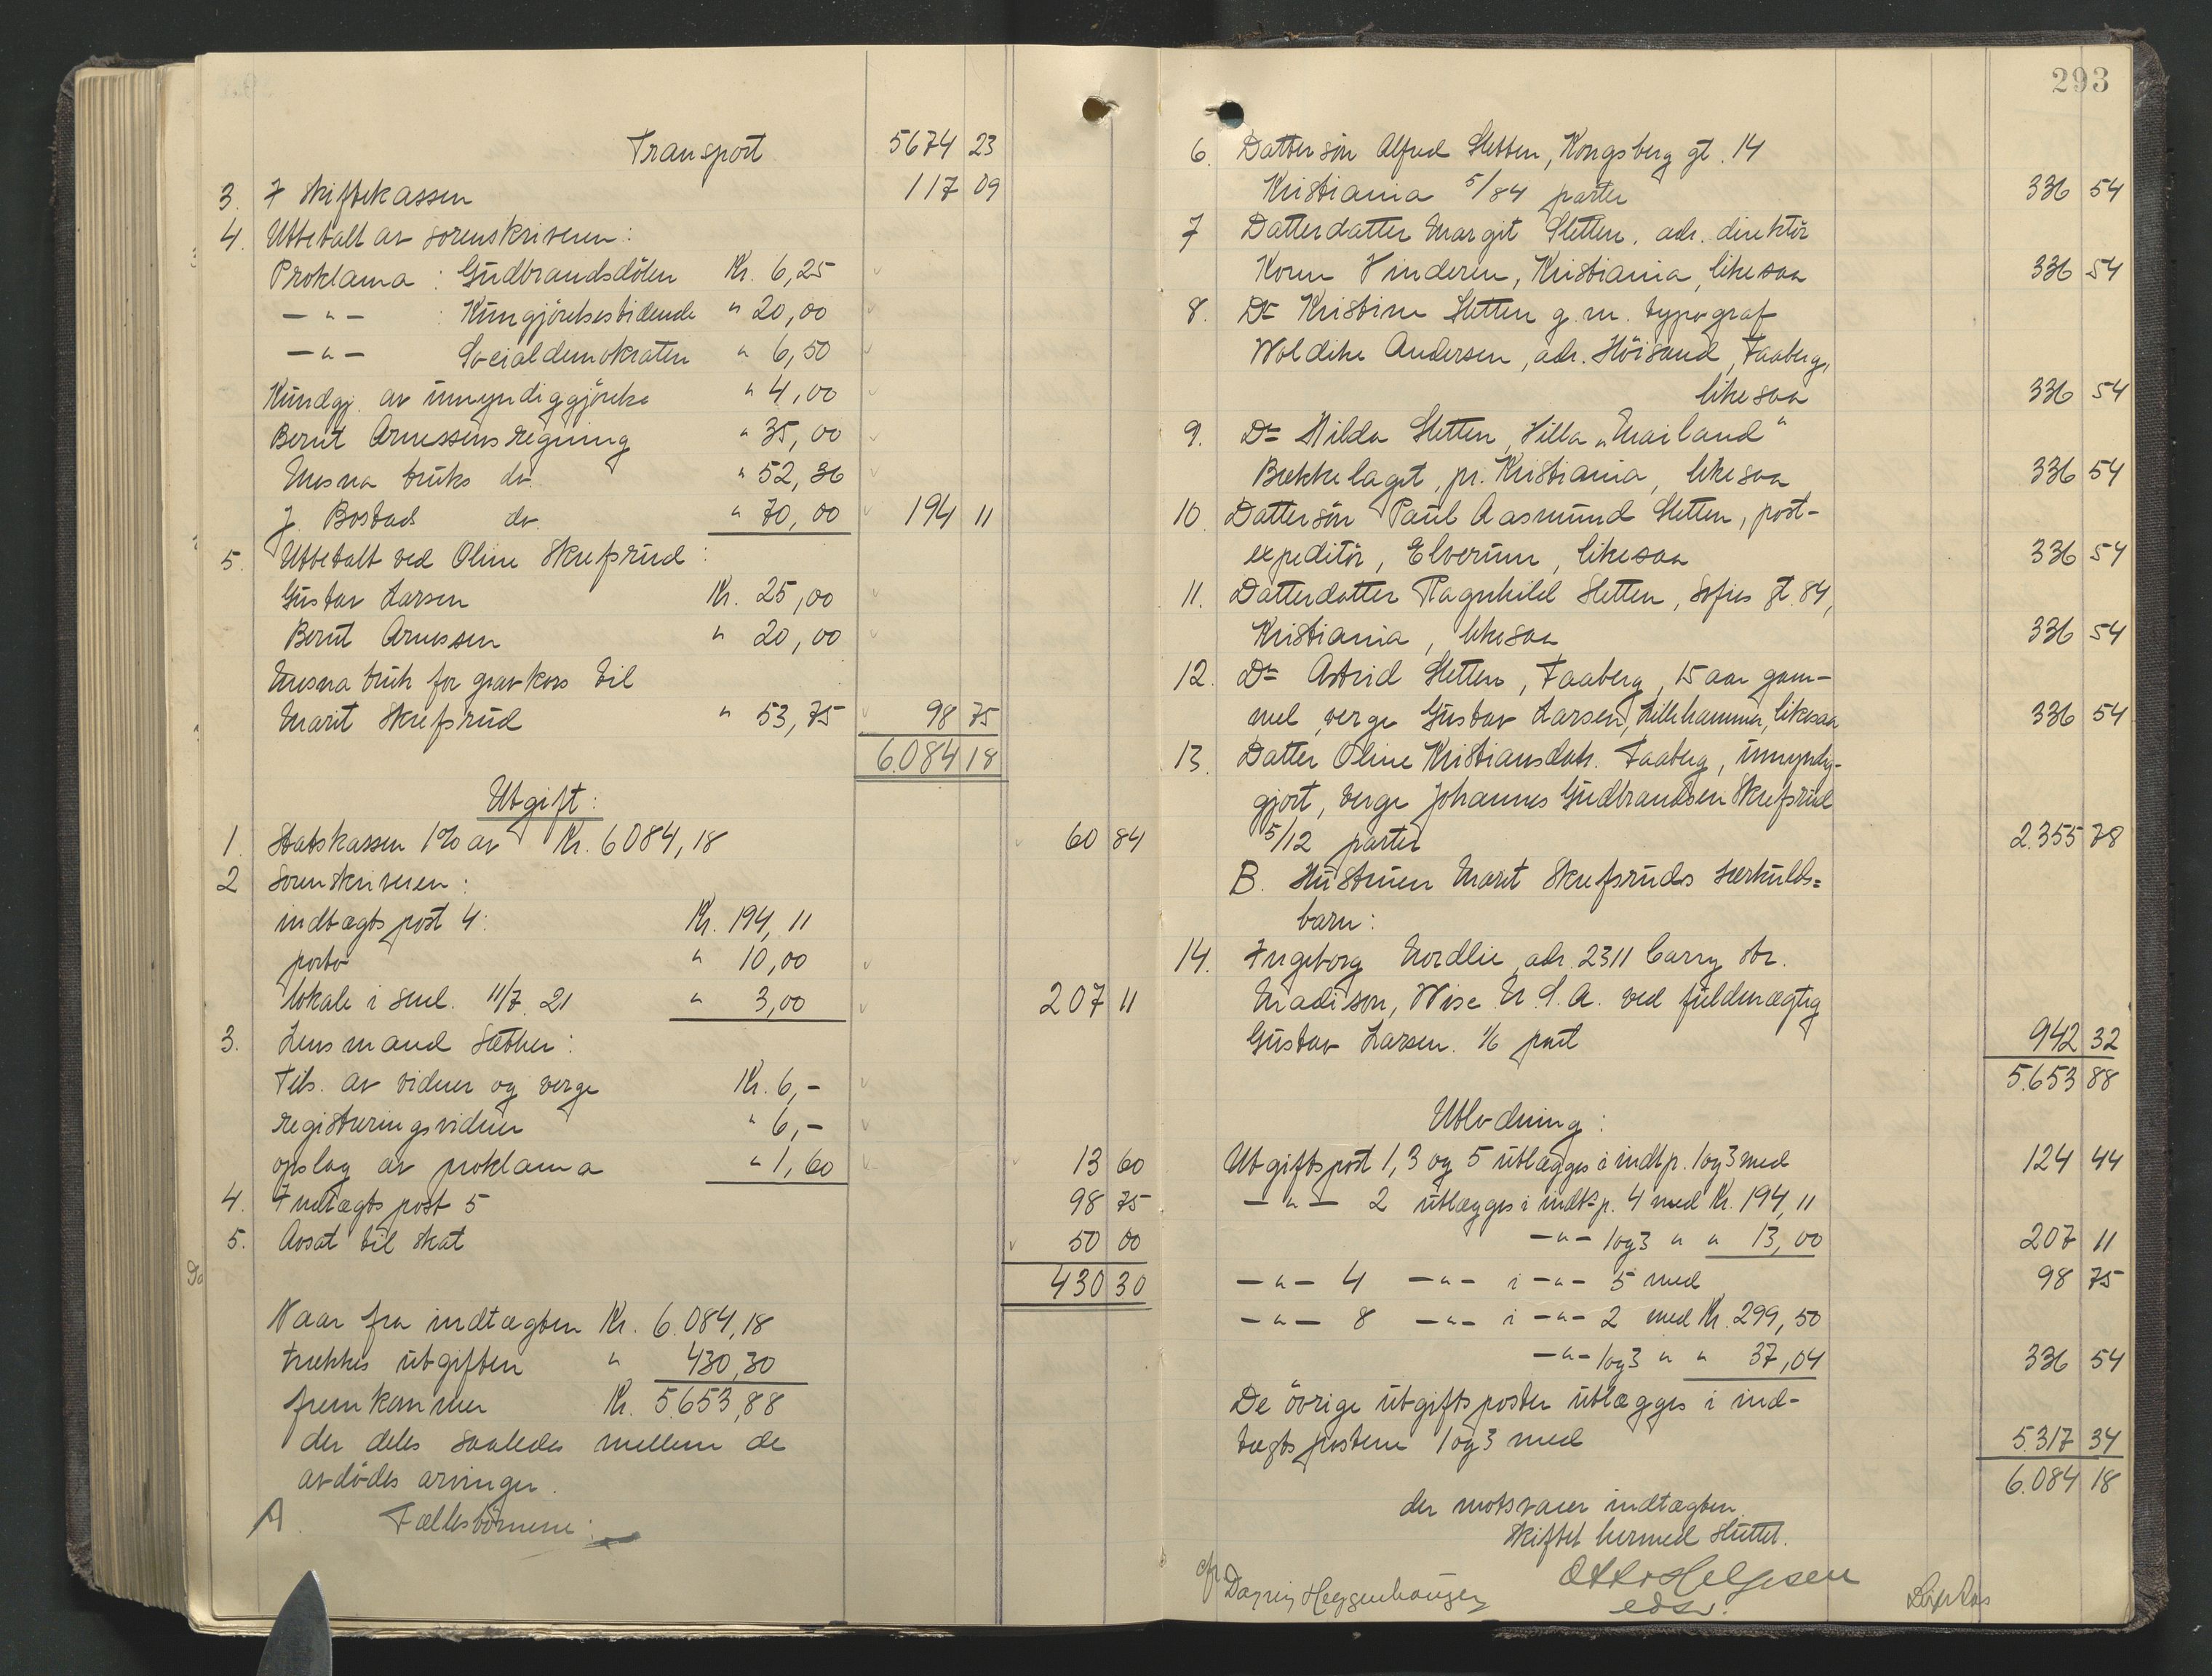 Transport 5674 23
3. I skiftekassen 117 09
4. Utbetalt av sorenskriveren:
Proklama: Gudbrandsdölen Kr. 6,25
— " — : Kungjörelsestidende " 20,00
— " — Socialdemokraten " 6,50
Kundgj. av umyndiggjörelse " 4,00
Bernt Arnessens regning " 35,00
Mesna bruks do. " 52,36
J. Bostad do. " 70,00 194 11
5. Utbetalt ved Oline Skrefsrud:
Gustav Larsen Kr. 25,00
Bernt Arnessen " 20,00
Mesna bruk for gravkors til
Marit Skrefsrud " 53,75 98 75
6.084 18
Utgift:
1. Statskassen 1% av Kr. 6084,18 60 84
2 Sorenskriveren:
indtægtspost 4: Kr. 194,11
porto " 10,00
lokale i saml. 11/7 21 " 3,00 207 11
3. Lensmand Sæther:
Tils. av vidner og verge Kr. 6,-
registreringsvidner " 6,-
opslag av proklama " 1,60 13 60
4. Indtægtspost 5 98 75
5. Avsat til skat 50 00
430 30
Naar fra indtægten Kr. 6.084,18
trækkes utgiften " 430,30
fremkommer Kr. 5.653,88
der deles saaledes mellem de
avdödes arvinger.
A. Fællesbörnene:
293
6. Dattersön Alfred Sletten, Kongsberg gt. 14
Kristiania 5/84 parter 336 54
7 Datterdatter Margit Sletten, adr. direktör
Koren Vinderen, Kristiania, likesaa 336 54
8. Do Kristine Sletten g. m. typograf
Woldike Andersen, adr. Höisand, Faaberg,
likesaa 336 54
9. Do Hilda Sletten, Villa „Mailand"
Bækkelaget, pr. Kristiania, likesaa 336 54
10. Dattersön Paul Aasmund Sletten, post-
expeditör, Elverum, likesaa 336 54
11. Datterdatter Ragnhild Sletten, Sofies gt. 84,
Kristiania, likesaa 336 54
12. Do Astrid Sletten, Faaberg, 15 aar gam-
mel, verge Gustav Larsen, Lillehammer, likesaa 336 54
13. Datter Oline Kristiansdatr. Faaberg, umyndig-
gjort, verge Johannes Gudbrandsen Skrefsrud
5/12 parter 2.355 78
B. Hustruen Marit Skrefsruds særkulds=
barn:
14. Ingeborg Nordlie, adr. 2311 Carry Str.
Madison, Wisc. U.S.A. ved fuldmægtig
Gustav Larsen. 1/6 part 942 32
5.653 88
Utlodning:
Utgiftspost 1, 3 og 5 utlægges i indt p. 1 og 3 med 124 44
— " — 2 utlægges i indt. p. 4 med Kr. 194,11
— " — 1 og 3 " " 13,00 207 11
— " — 4 — " — i — " — 5 med 98 75
— " — 8 — " — i — " — 2 med Kr. 299,50
— " — 1 og 3 " " 37,04 336 54
De övrige utgiftsposter utlægges i ind-
tægtspostene 1 og 3 med 5.317 34
6.084 18
der motsvarer indtægten.
Skiftet hermed sluttet.
Otto Helgesen
edsv.